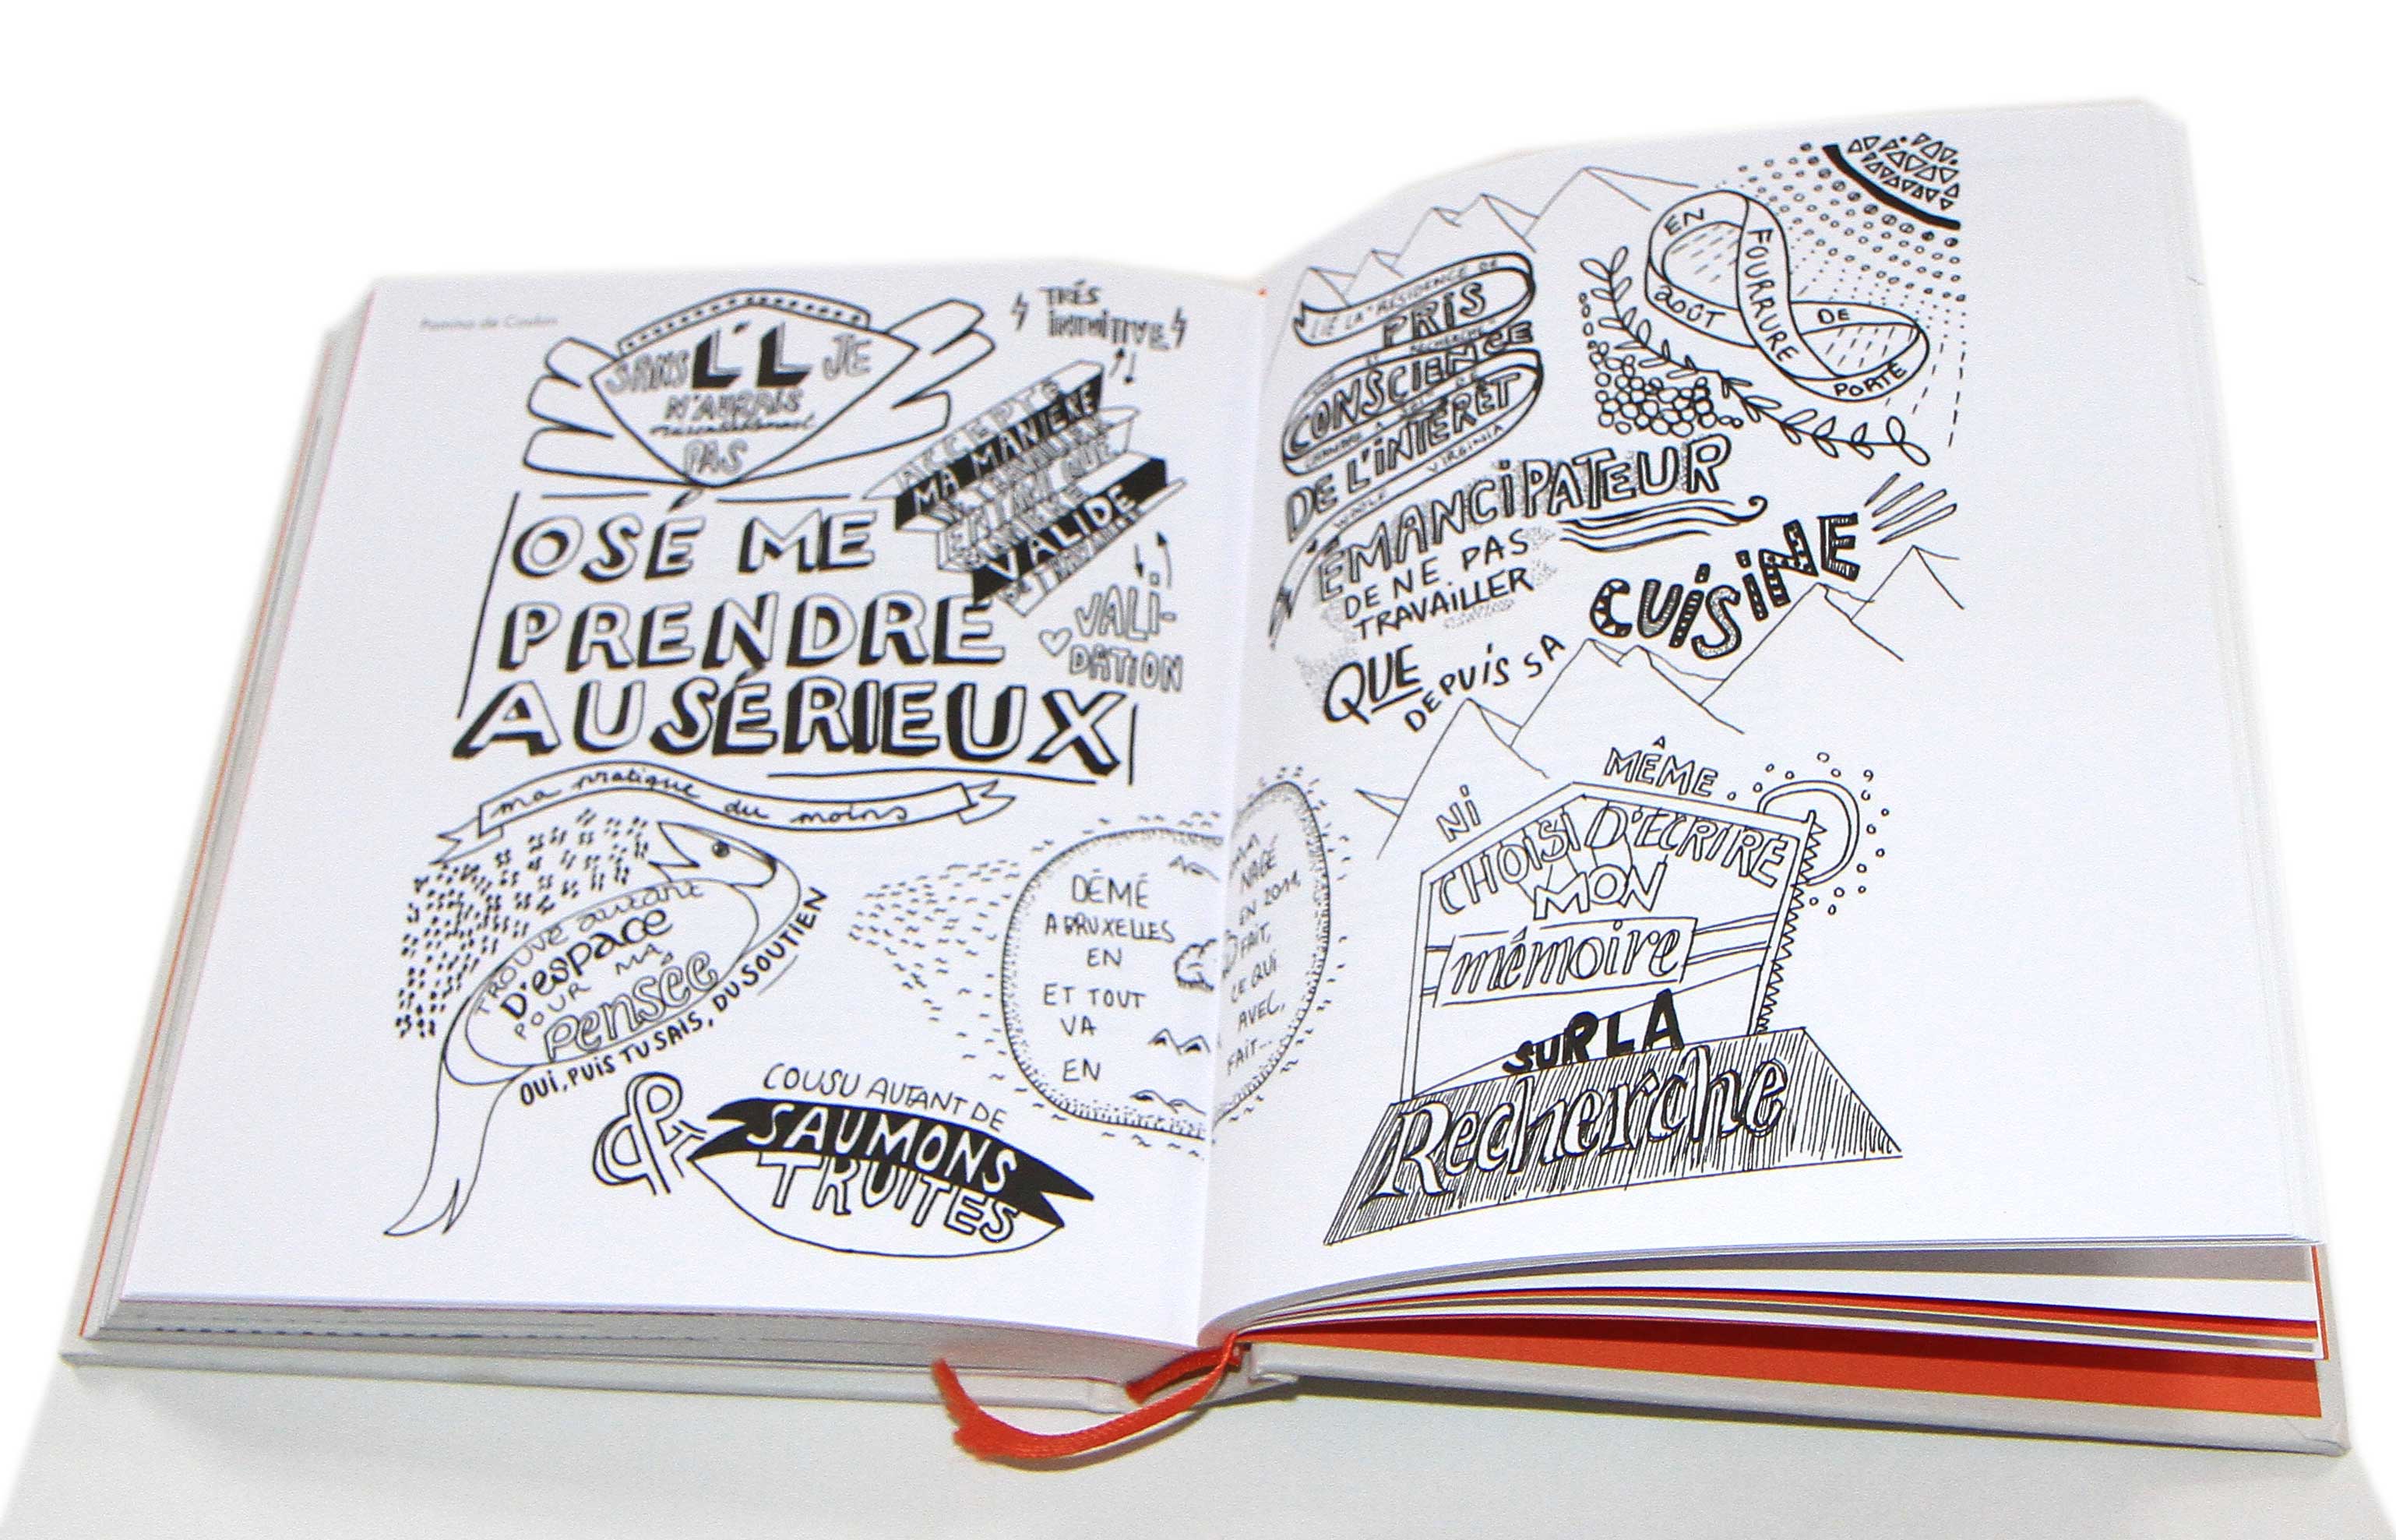 Pamina de Coulon
SANS L'L JE
N'AURAIS
PAS
TRÈS
INTUITIVE
ACCEPTÉ
MA MANIÈRE
VALIDE
OSÉ ME
PRENDRE
AU SÉRIEUX
VALI-
DATION
ma pratique du moins
TROUVÉ autant
D'espace
POUR MA
pensée
OUI, PUIS TU SAIS, DU SOUTIEN
&
COUSU AUTANT DE
SAUMONS
TRUITES
DÉMÉNAGÉ
A BRUXELLES EN 2011,
EN FAIT,
ET TOUT CE QUI
VA AVEC,
EN FAIT...
LIÉ LA RÉSIDENCE DE
PRIS
ET RECHERCHE
CONSCIENCE
DE
CHAMBRE À SOI
DE L'INTÉRÊT
VIRGINIA
WOOLF
ÉMANCIPATEUR
DE NE PAS
TRAVAILLER
QUE DEPUIS SA
CUISINE
EN
FOURRURE
AOÛT
DE
PORTÉ
NI MÊME
CHOISI D'ÉCRIRE
MON
mémoire
SUR LA
Recherche